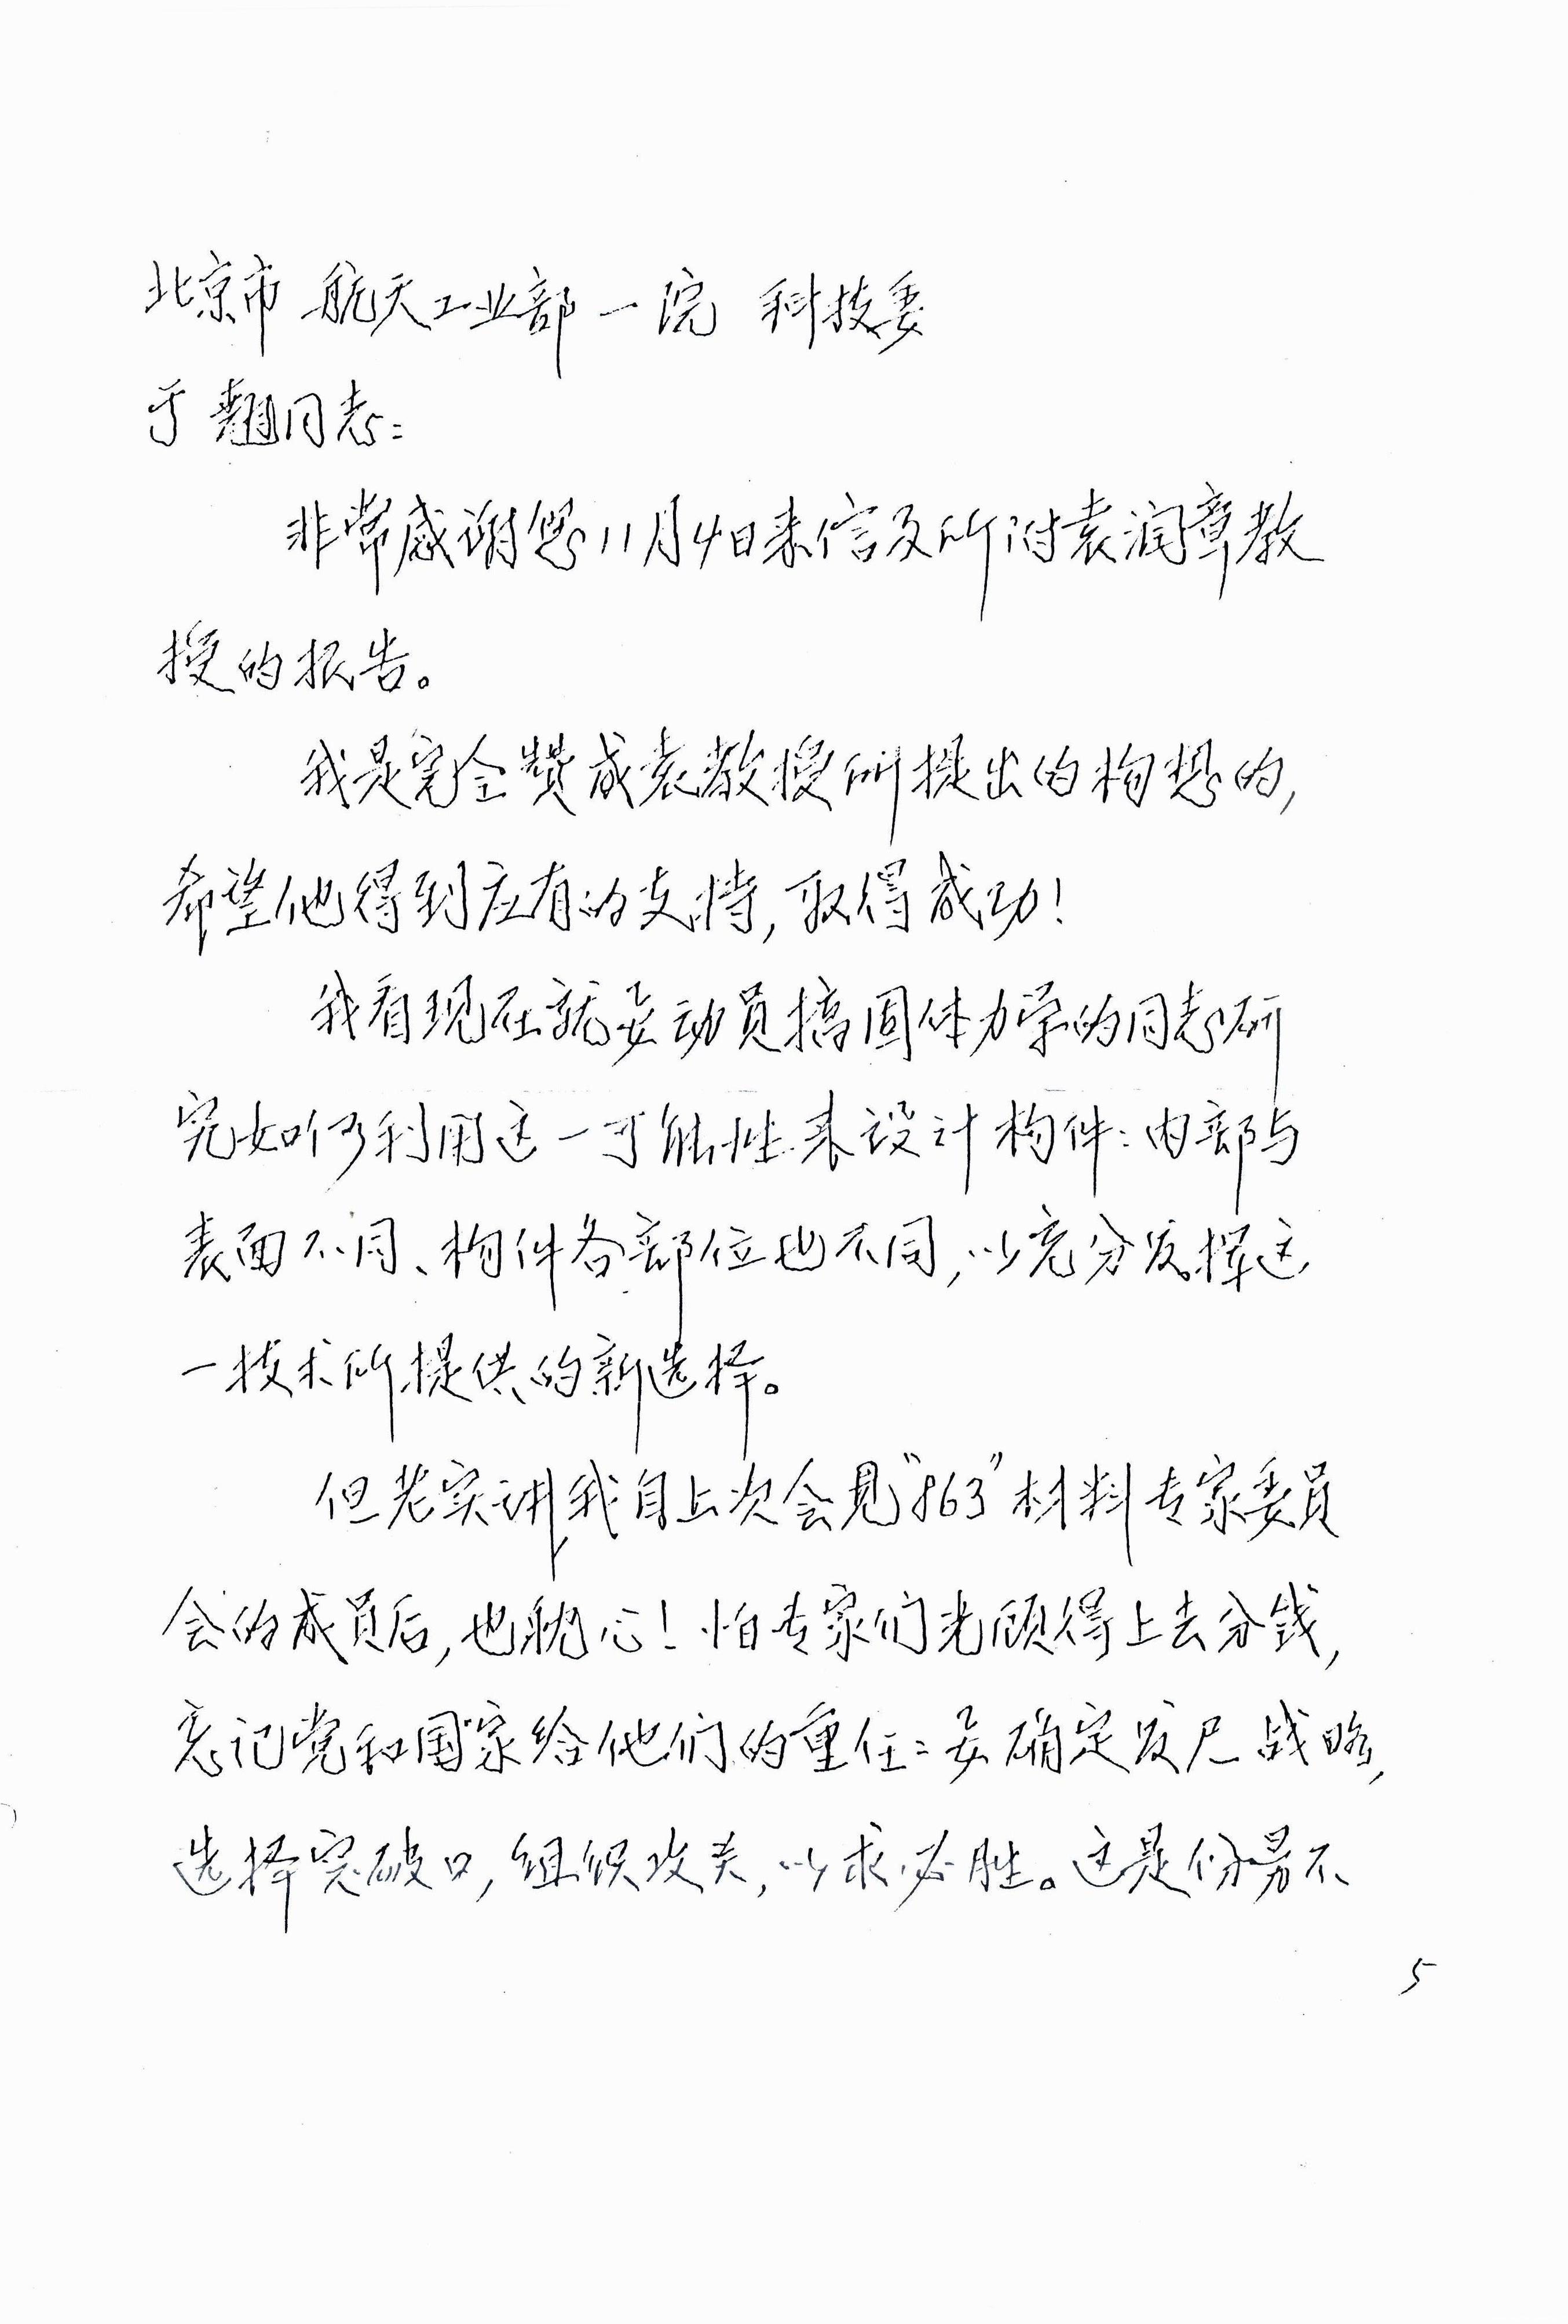 北京市 航天工业部一院 科技委
于翘同志:
非常感谢您11月4日来信及所附袁润章教
授的报告。
我是完全赞成袁教授所提出的构想的,
希望他得到应有的支持,取得成功!
我看现在就要动员搞固体力学的同志研
究如何利用这一可能性来设计构件:内部与
表面不同、构件各部位也不同,以充分发挥这
一技术所提供的新选择。
但老实讲,我自上次会见“863”材料专家委员
会的成员后,也耽心!怕专家们光顾得上去分钱,
忘记党和国家给他们的重任:要确定发展战略,
选择突破口,组织攻关,以求必胜。这是份易不
5